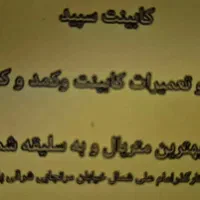 کابینت سپید
و تعمیرات کابینت وکمد و ک
بهترین متریال و به سلیقه شم
امام علی شمالی خیابان